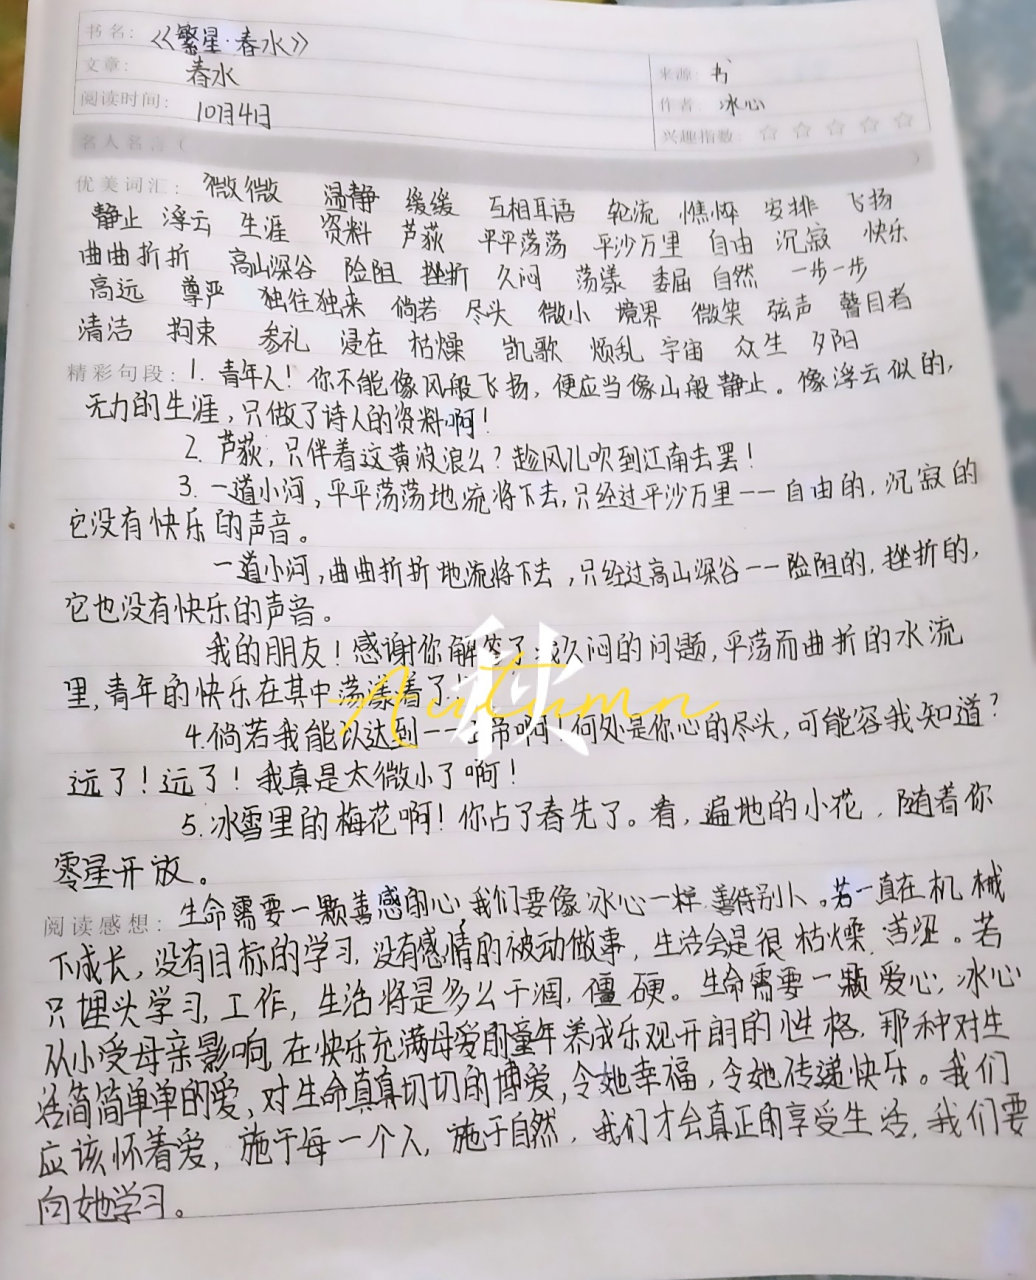 书名：《繁星·春水》
文章：春水
来源：书
阅读时间：10月4日
作者：冰心
兴趣指数：☆ ☆ ☆ ☆ ☆
名人名言（ ）
优美词汇：微微 温静 缓缓 互相耳语 轮流 憔悴 安排 飞扬
静止 浮云 生涯 资料 芦荻 平平荡荡 平沙万里 自由 沉寂 快乐
曲曲折折 高山深谷 险阻 挫折 久闷 荡漾 委屈 自然 一步一步
高远 尊严 独往独来 倘若 尽头 微小 境界 微笑 弦声 瞽目者
清洁 拘束 参礼 浸在 枯燥 凯歌 烦乱 宇宙 众生 夕阳
精彩句段：1. 青年人！你不能像风般飞扬，便应当像山般静止。像浮云似的，
无力的生涯，只做了诗人的资料啊！
2. 芦荻，只伴着这黄波浪么？趁风儿吹到江南去罢！
3. 一道小河，平平荡荡地流将下去，只经过平沙万里——自由的，沉寂的
它没有快乐的声音。
一道小河，曲曲折折地流将下去，只经过高山深谷——险阻的，挫折的，
它也没有快乐的声音。
我的朋友！感谢你解答了我久闷的问题，平荡而曲折的水流
里，青年的快乐在其中荡漾着了！
秋
Autumn
4. 倘若我能以达到——上帝啊！何处是你心的尽头，可能容我知道？
远了！远了！我真是太微小了啊！
5. 冰雪里的梅花啊！你占了春先了。看，遍地的小花，随着你
零星开放。
阅读感想：生命需要一颗善感的心，我们要像冰心一样，善待别人。若一直在机械
下成长，没有目标的学习，没有感情的被动做事，生活会是很枯燥，苦涩。若
只埋头学习，工作，生活将是多么干涸，僵硬。生命需要一颗爱心，冰心
从小受母亲影响，在快乐充满母爱的童年养成乐观开朗的性格，那种对生
活简简单单的爱，对生命真真切切的博爱，令她幸福，令她传递快乐。我们
应该怀着爱，施于每一个人，施于自然，我们才会真正的享受生活，我们要
向她学习。